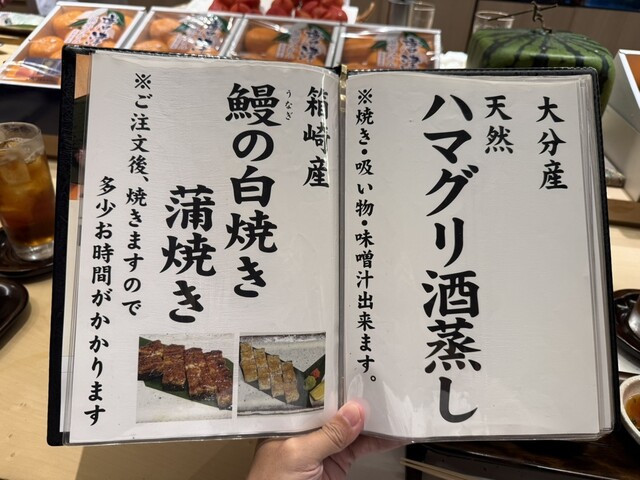 大分産
天然
ハマグリ酒蒸し
※焼き・吸い物・味噌汁出来ます。
箱崎産
うなぎ
鰻の白焼き
蒲焼き
※ご注文後、焼きますので
多少お時間がかかります